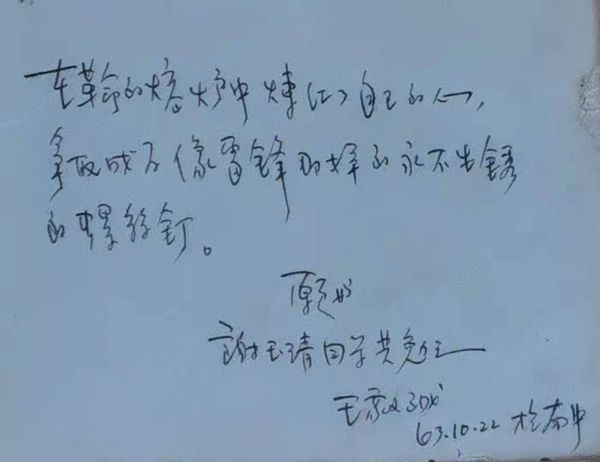 在革命的熔炉中炼红了自己的心，
争取成为像雷锋那样的永不生锈
的螺丝钉。
愿与
谢玉清同学共勉之
63.10.22 于南中